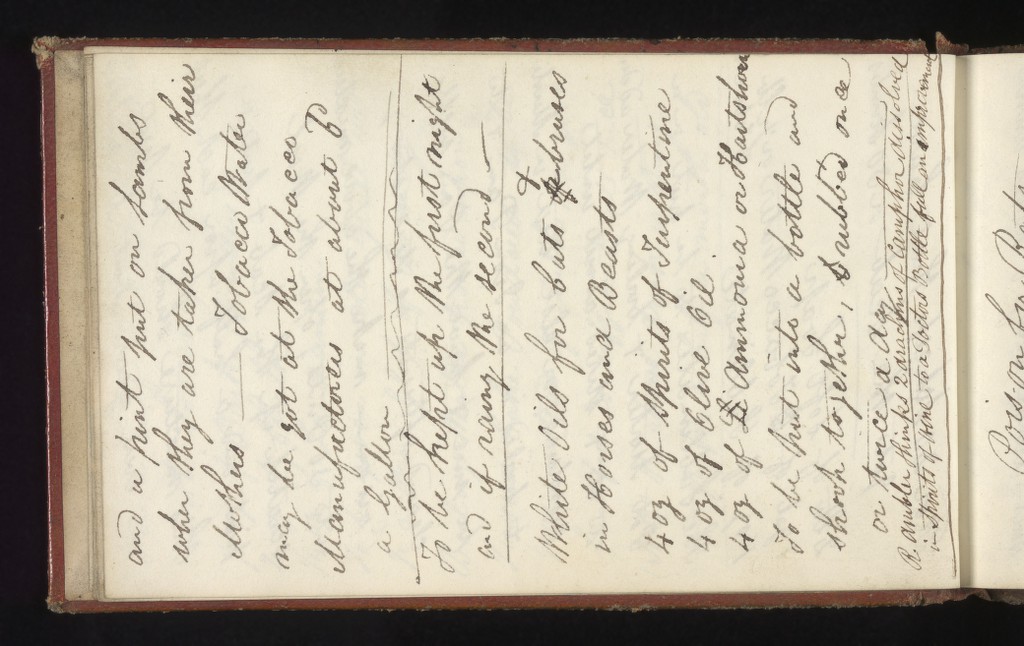 and a pint put on Lambs
when they are taken from their
Mothers — Tobacco Water
may be got at the Tobacco
Manufactories at about 6
a Gallon
To be kept up the first night
and if rainy the second —
White Oils for Cuts & bruises
in Horses and Beasts
4 oz of Spirits of Turpentine
4 oz of Olive Oil.
4 oz of Ammonia or Hartshorn
To be put into a bottle and
shook together, & rubbed once
or twice a day
R. Ambler thinks 2 drachms of Camphor dissolved
in Spirits of Wine to a Bottle full an improvement
Poison for Rats